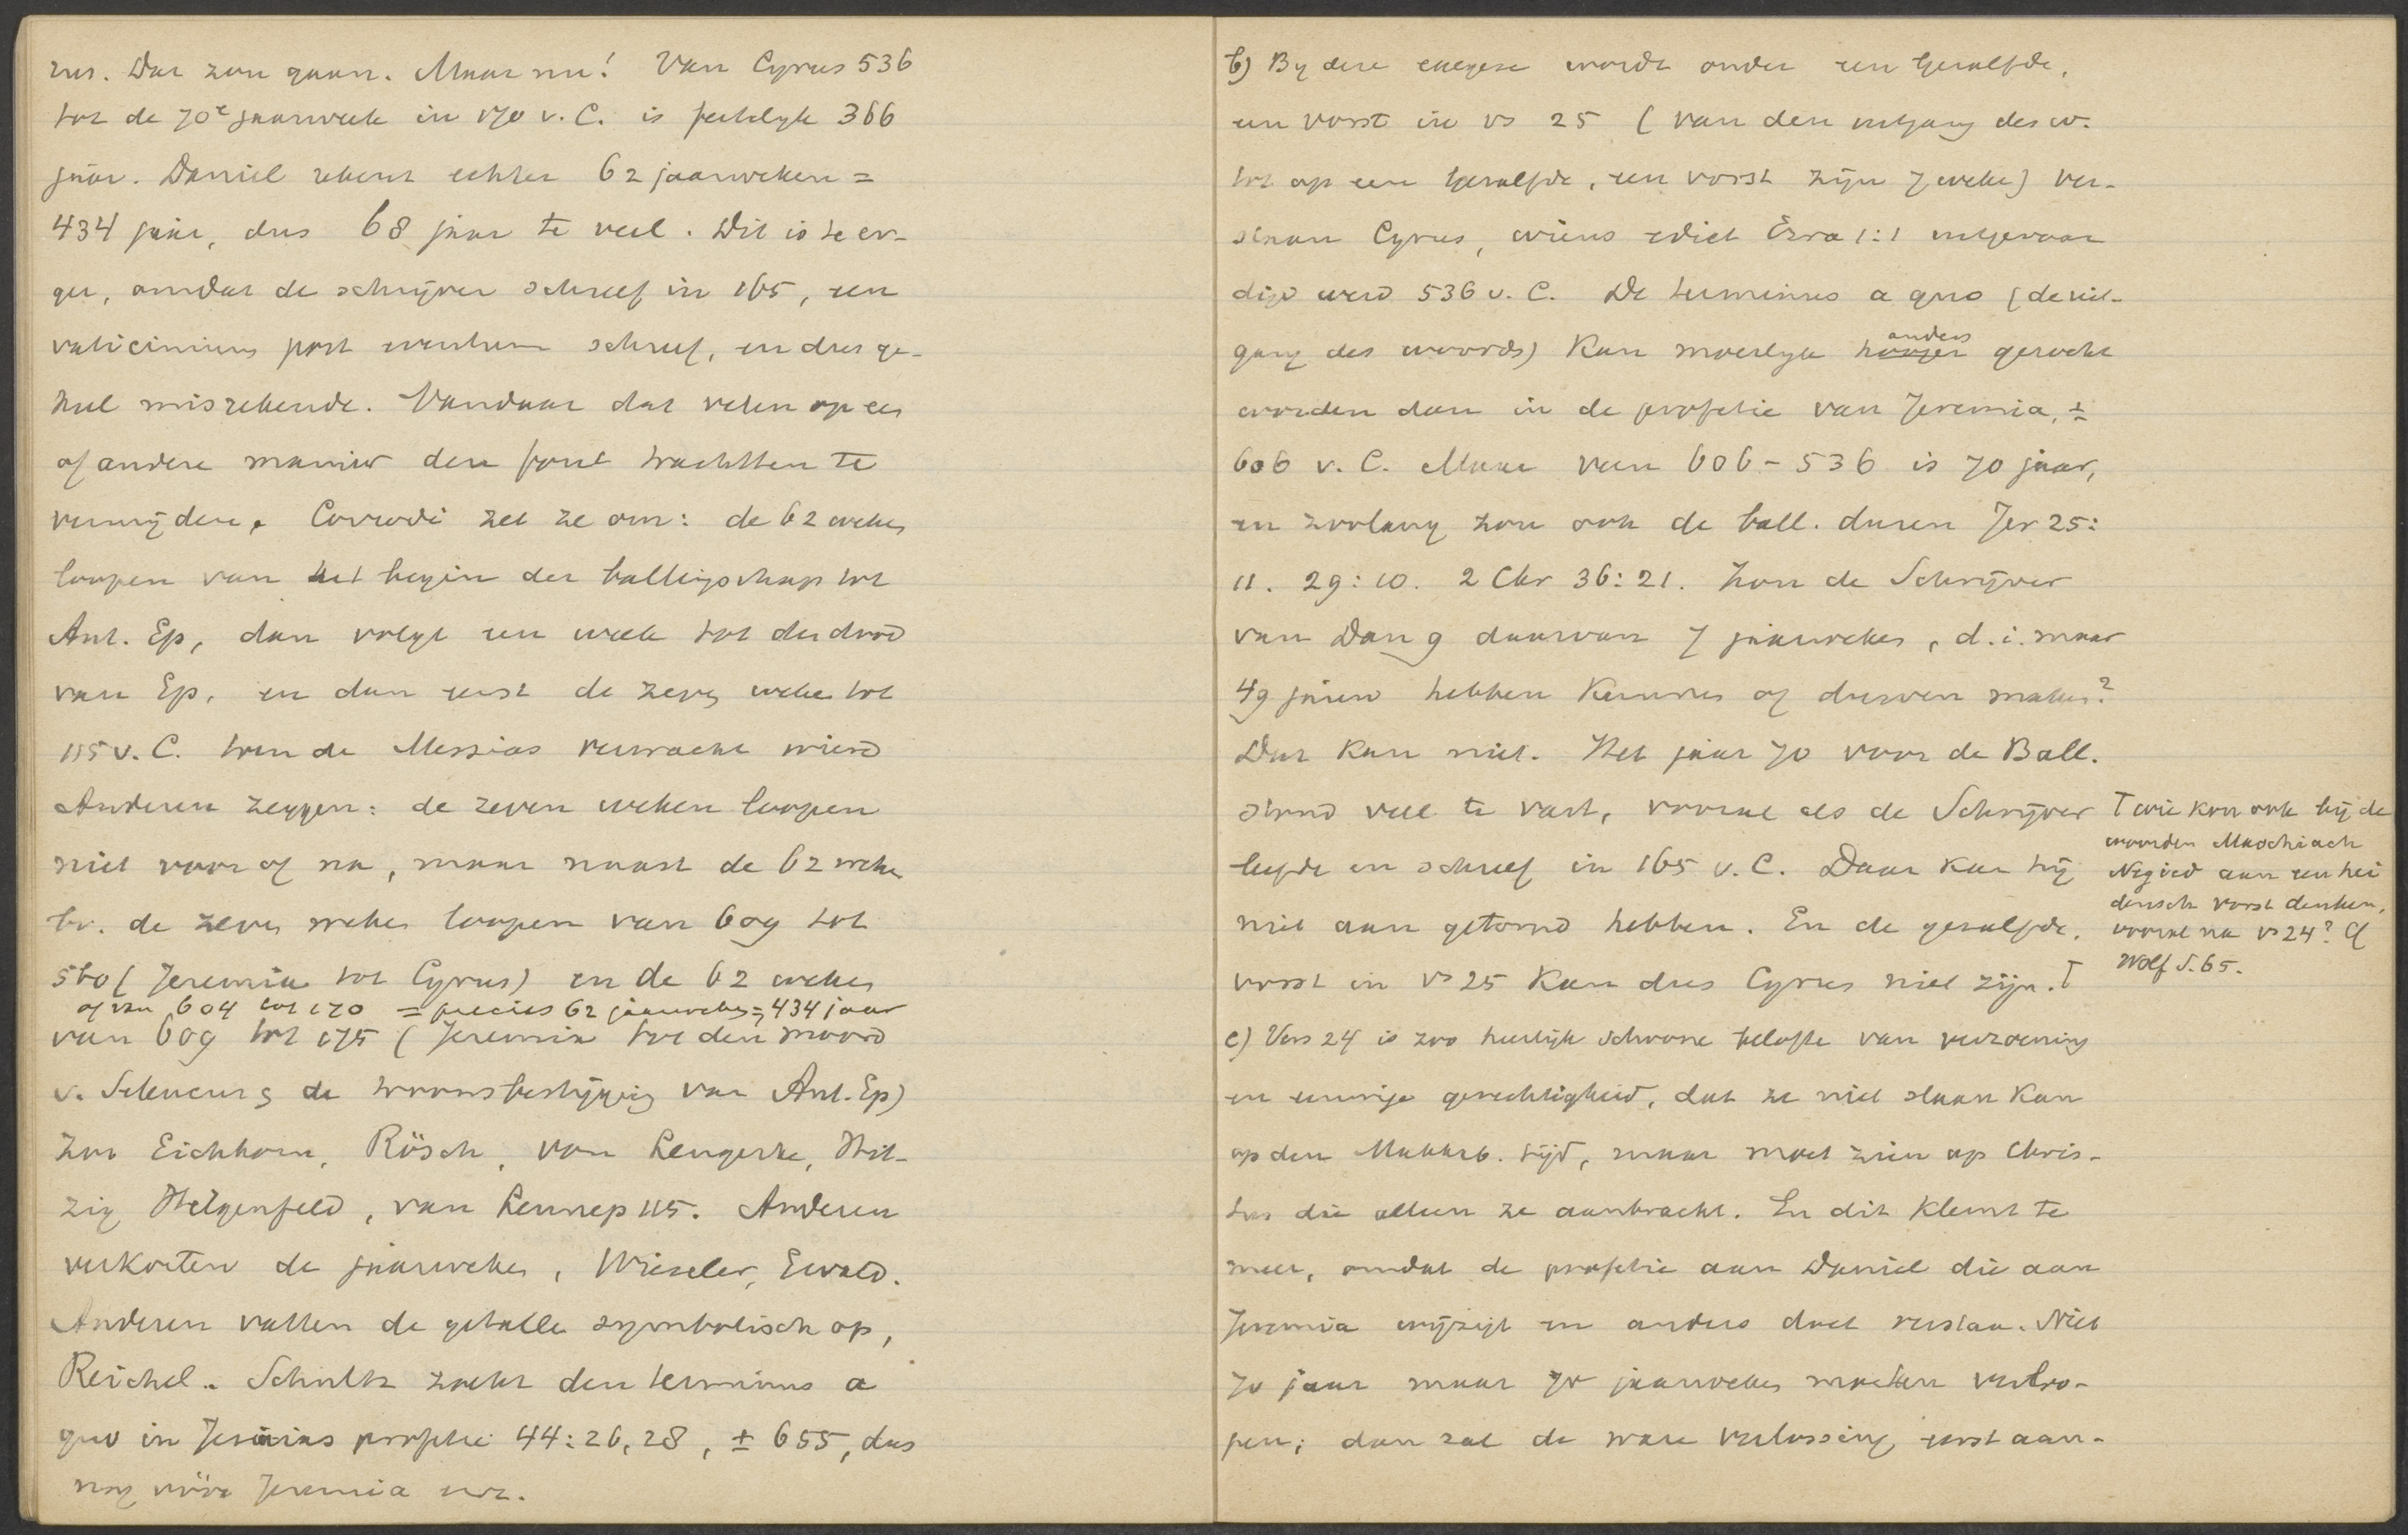 rus. Dat zou gaan. Maar nu! Van Cyrus 536
tot de 70e jaarweek in 170 v. C. is feitelyk 366
jaar. Daniel rekent echter 62 jaarweken =
434 jaar, dus 68 jaar te veel. Dit is te er-
ger, omdat de schrijver schreef in 165, een
vaticinium post eventum schreef, en dus ge-
heel misrekende. Vandaar dat velen op een
of andere manier deze fout trachtten te
vermijden. Corrodi zet ze om: de 62 weken
loopen van het begin der ballingschap tot
Ant. Ep, dan volgt een week tot den dood
van Ep. en dan eerst de zeven weken tot
115 v. C. toen de Messias verwacht wierd
Anderen zeggen: de zeven weken loopen
niet voor of na, maar naast de 62 weken
bv. de zeven weken loopen van 609 tot
560 (Jeremia tot Cyrus) en de 62 weken
of van 604 tot 170 = precies 62 jaarweken = 434 jaar
van 609 tot 175 (Jeremia tot den moord
v. Seleucus & de troonsbestijging van Ant. Ep)
zoo Eichhorn, Rösch, von Lengerke, Hit-
zig Hilgenfeld, van Lennep 115. Anderen
verkorten de jaarweken, Wieseler, Ewald.
Anderen vatten de getallen symbolisch op,
Reichel. Schultz zoekt den terminus a
quo in Jesaias profetie 44:26, 28, ± 655, dus
nog vóór Jeremia enz.
b) By deze exegese wordt onder een Gezalfde,
een vorst in vs 25 (van den uitgang des w.
tot op een Gezalfde, een vorst zijn 7 weken) ver-
staan Cyrus, wiens edict Ezra 1:1 uitgevaar
digd werd 536 v. C. De terminus a quo (de uit-
gang des woords) kan moeilyk hooger anders gezocht
worden dan in de profetie van Jeremia, ±
606 v. C. Maar van 606 - 536 is 70 jaar,
en zoolang zou ook de ball. duren Jer 25:
11. 29:10. 2 Chr 36:21. Zou de Schrijver
van Dan 9 daarvan 7 jaarweken, d.i. maar
49 jaren hebben kunnen of durven maken?
Dat kan niet. Het jaar 70 voor de Ball.
stond veel te vast, vooral als de Schrijver
leefde en schreef in 165 v. C. Daar kan hij
niet aan getornd hebben. En de gezalfde,
vorst in vs 25 kan dus Cyrus niet zijn. T
T wie kon ook bij de
woorden Maschiach
Nagied aan een hei
densch vorst denken,
vooral na vs 24? Cf
Wolf S. 65.
c) Vers 24 is zoo heerlijk schoone belofte van verzoening
en eeuwige gerechtigheid, dat ze niet slaan kan
op den Makkab. tijd, maar moet zien op Chris-
tus die alleen ze aanbracht. En dit klemt te
meer, omdat de profetie aan Daniel die aan
Jeremia wijzigt en anders doet verstaan. Niet
70 jaar maar 70 jaarweken moeten verloo-
pen; dan zal de ware verlossing eerst aan-